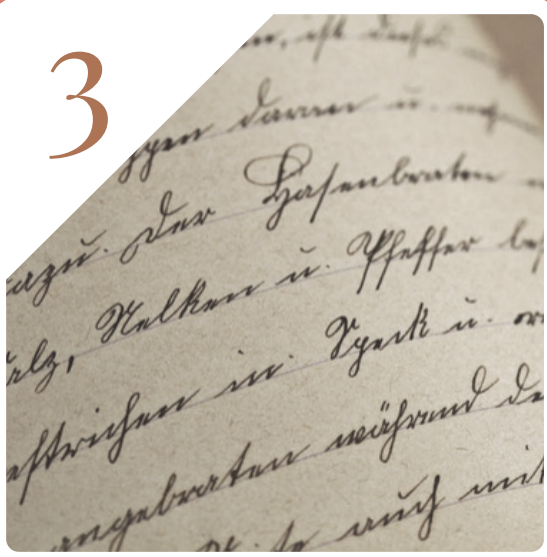 3
ist
daran u.
dazu. Der Hasenbraten
Salz, Nelken u. Pfeffer
bestrichen in. Speck u.
angebraten während
auch mit